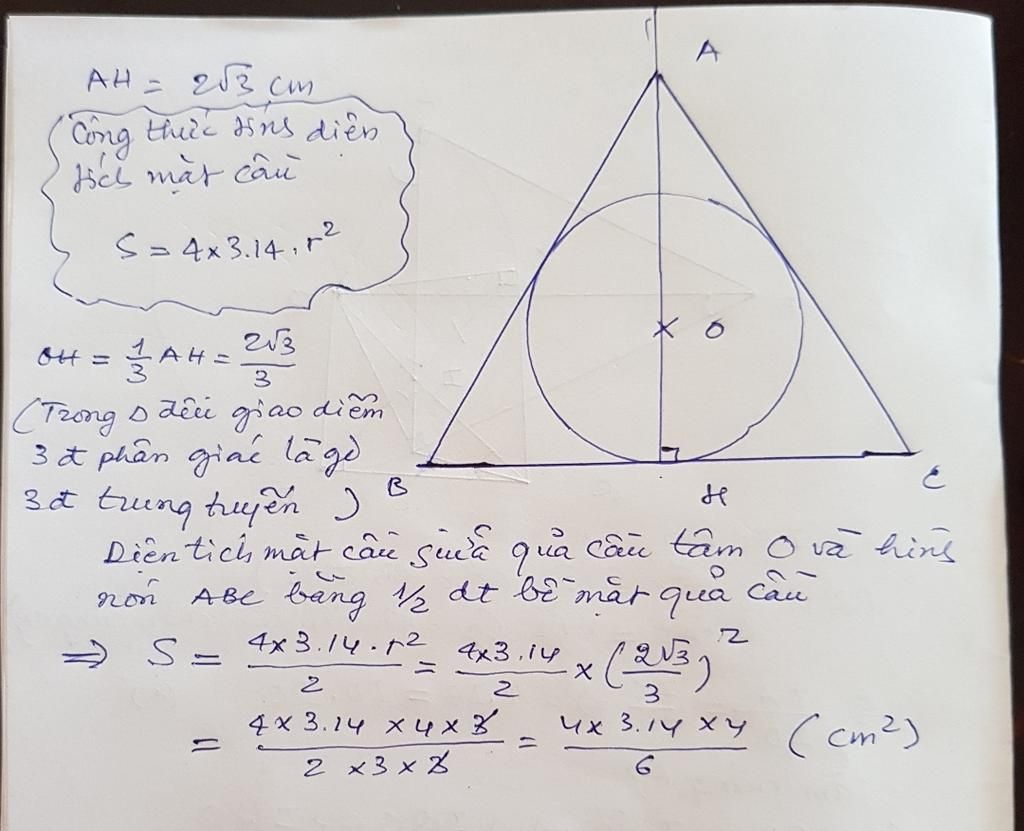 AH = 2√3 cm
Công thức tính diện
tích mặt cầu
S = 4 x 3.14 . r²
OH = 1/3 AH = 2√3/3
(Trong Δ đều giao điểm
3 đ phân giác là gđ
3 đ trung tuyến )
Diện tích mặt cầu giữa quả cầu tâm O và hình
nón ABC bằng 1/2 dt bề mặt quả cầu
⇒ S = (4 x 3.14 . r²)/2 = (4x3.14)/2 x (2√3/3)²
= (4 x 3.14 x 4 x 3)/(2 x 3 x 3) = (4 x 3.14 x 4)/6 (cm²)
A
O
B
H
C